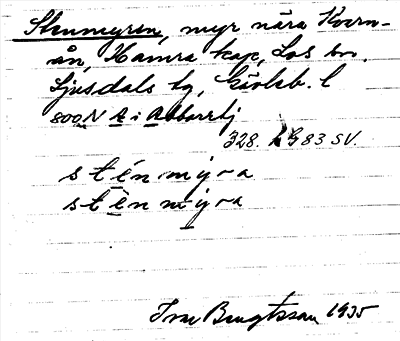 Stenmyren, myr nära Kvarn-
ån, Hamra kap, Los sn.
Ljusdals tg, Gävleb. l
800 N A i Abborrbj
328. 83 SV.
s t é n m y r a
s t è n m y r a
Bengtsson 1935